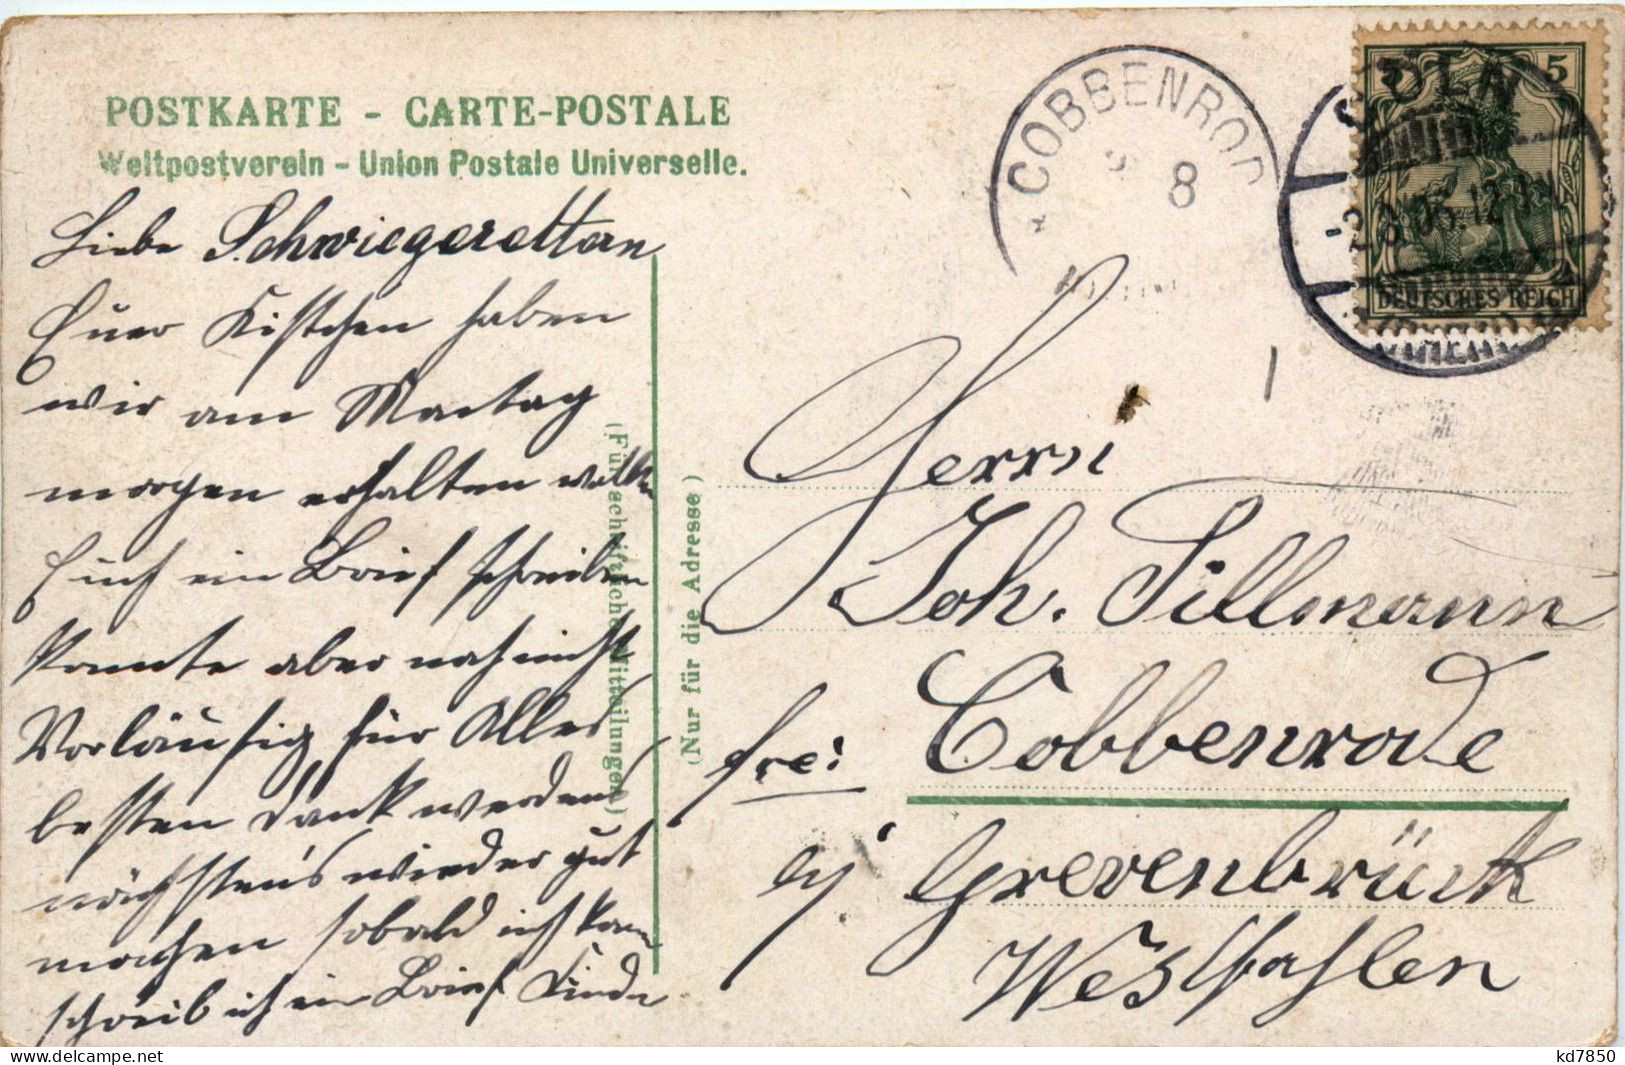 POSTKARTE - CARTE-POSTALE
Weltpostverein - Union Postale Universelle.
Liebe Schwiegereltern
Euer Kistchen haben
wir am Montag
morgen erhalten wollte
Euch ein Brief schreiben
konnte aber noch nicht
Vorläufig für Alles
besten Dank werden
nächstens wieder gut
machen sobald ich kann
schreib ich ein Brief
(Für schriftliche Mitteilungen)
(Nur für die Adresse)
COBBENROD
8
5
CÖLN
8.05.12
DEUTSCHES REICH
Herrn
Joh. Tillmann
frei: Cobbenrode
bj. Grevenbrück
Westfahlen
www.delcampe.net
kd7850